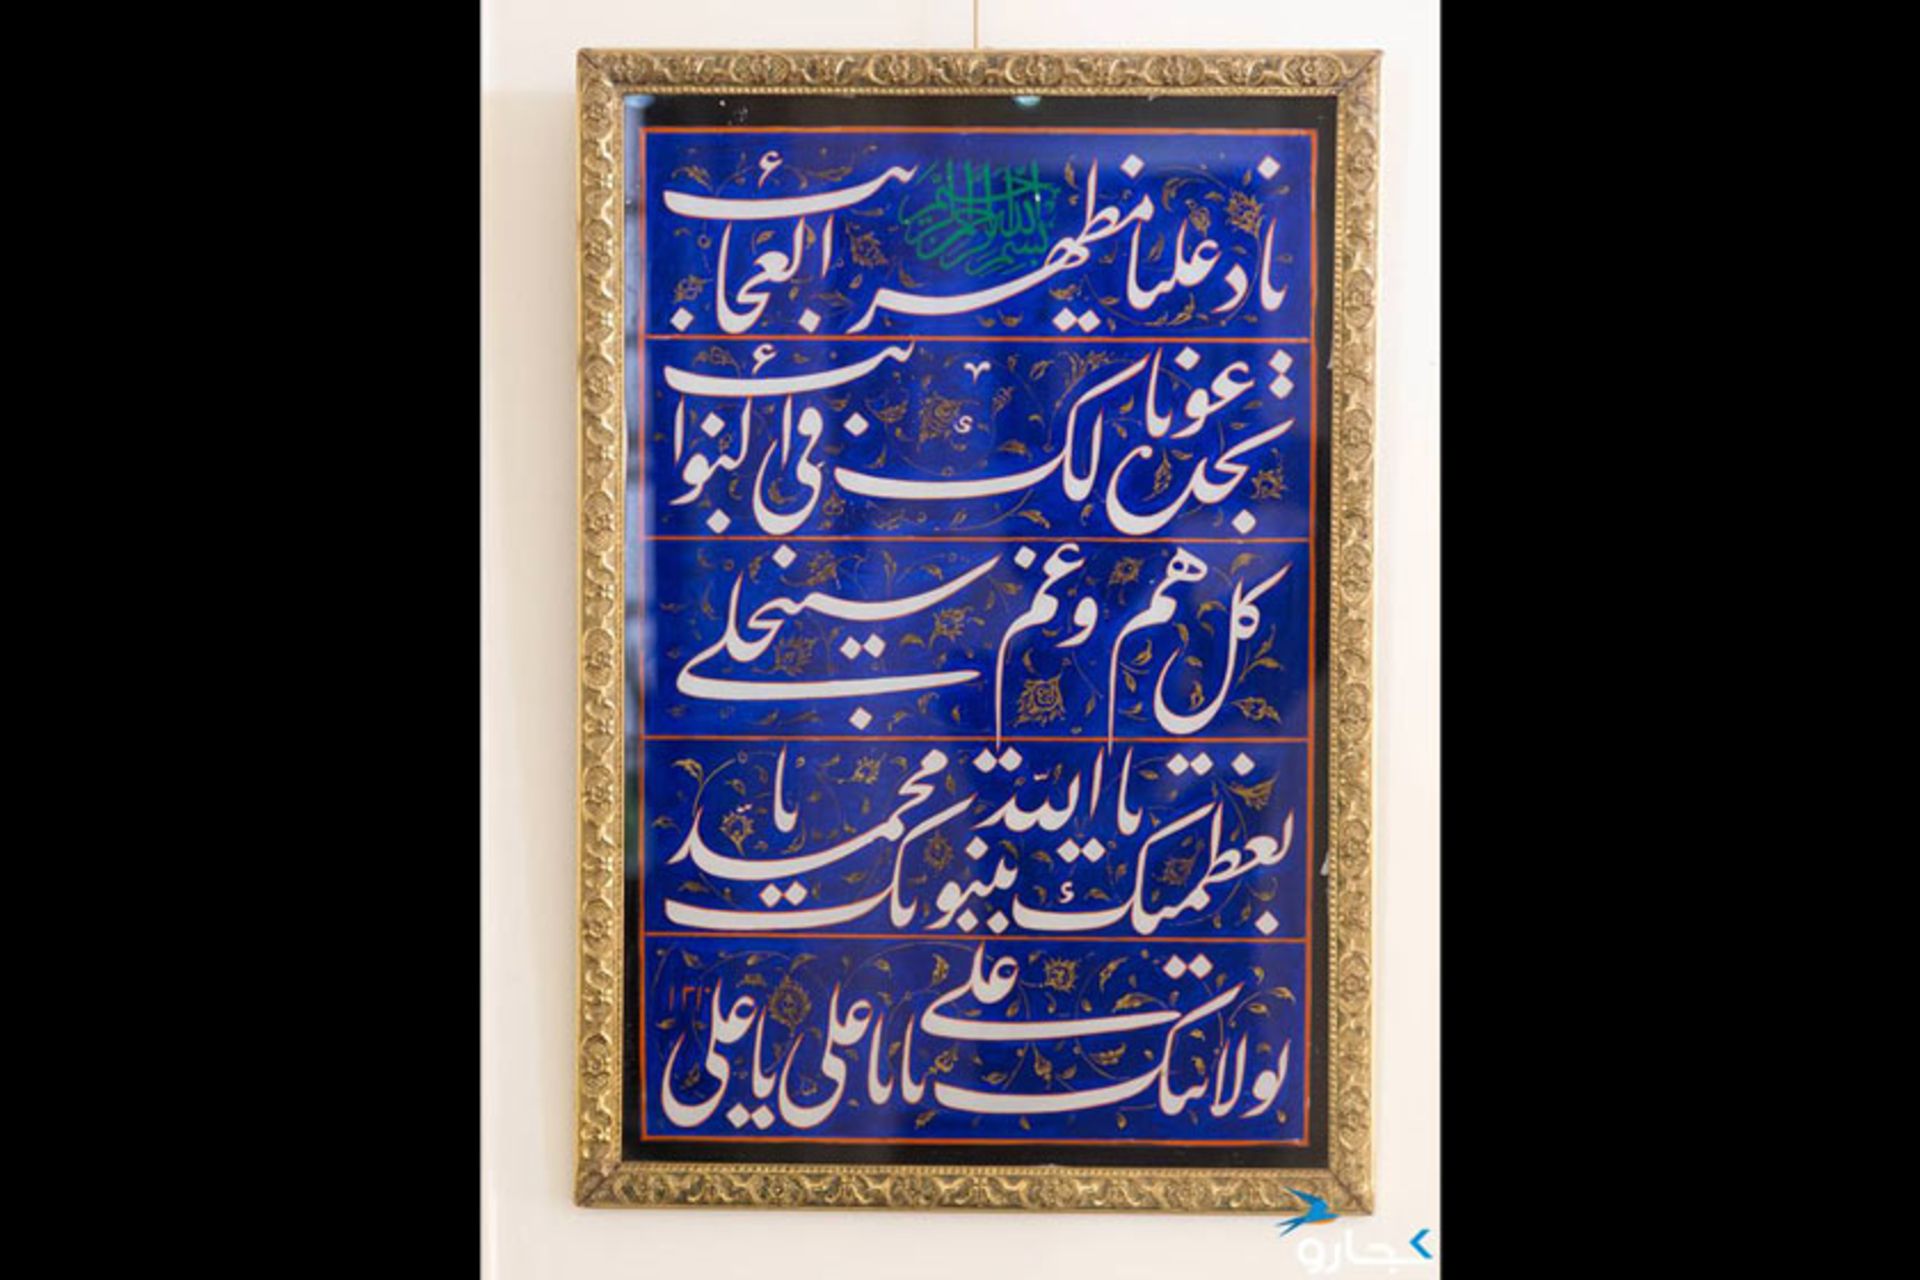 بسم الله الرحمن الرحیم
ناد علیا مظهر العجائب
تجده عونا لک فی النوائب
کل هم و غم سینجلی
بعظمتک یا الله بنبوتک یا محمد
بولایتک یا علی یا علی یا علی
۱۳۱۰
کجارو